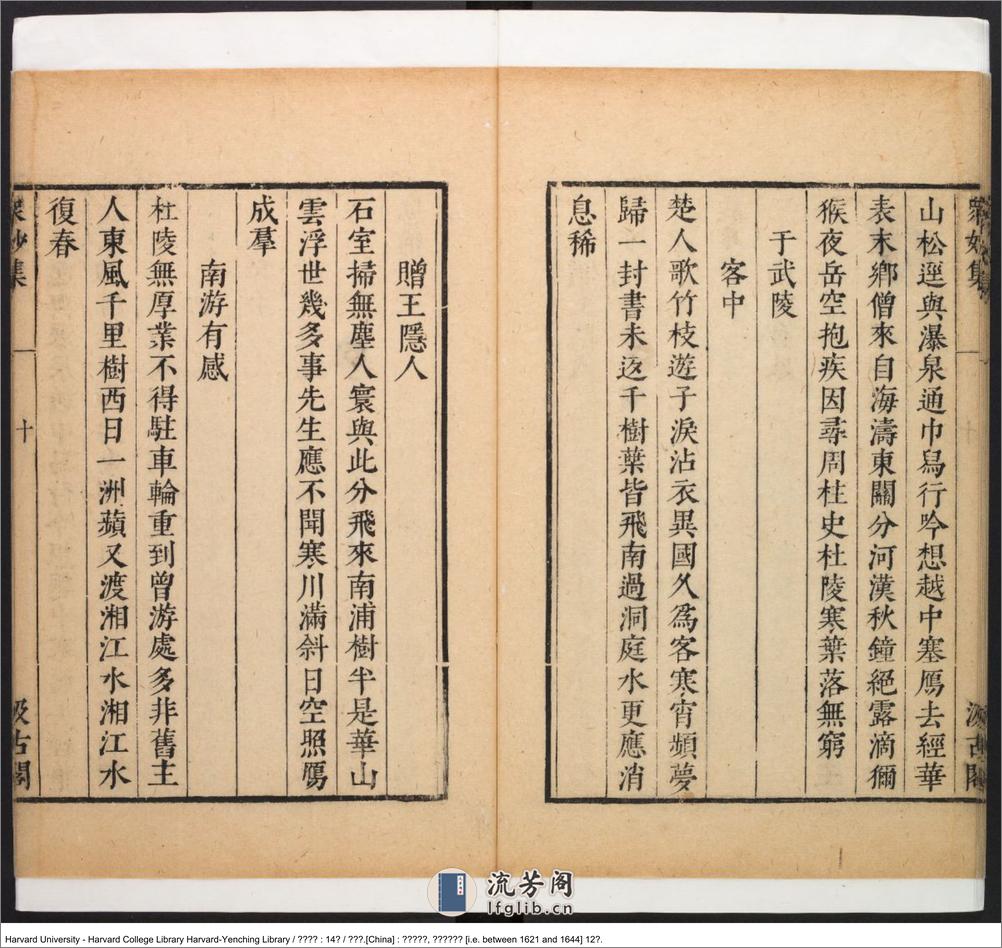 衆妙集
汲古閣
山松逕與瀑泉通巾舄行吟想越中塞鴈去經華
表末鄉僧來自海濤東關分河漢秋鐘絕露滴獼
猴夜岳空抱疾因尋周柱史杜陵寒葉落無窮
于武陵
客中
楚人歌竹枝遊子淚沾衣異國久爲客寒宵頻夢
歸一封書未返千樹葉皆飛南過洞庭水更應消
息稀
贈王隱人
石室掃無塵人寰與此分飛來南浦樹半是華山
雲浮世幾多事先生應不聞寒川滿斜日空照鴈
成羣
南游有感
杜陵無厚業不得駐車輪重到曾游處多非舊主
人東風千里樹西日一洲蘋又渡湘江水湘江水
復春
衆妙集
十
汲古閣
流芳阁
lfglib.cn
Harvard University - Harvard College Library Harvard-Yenching Library / ???? : 14? / ???.[China] : ?????, ?????? [i.e. between 1621 and 1644] 12?.